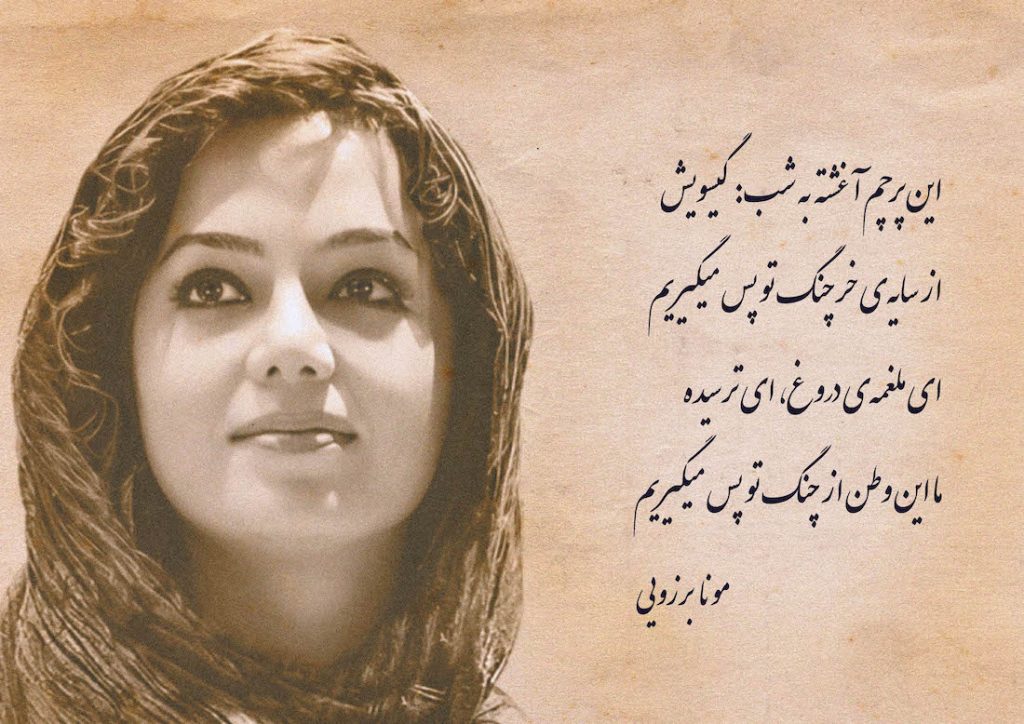 این پرچم آغشته به شب: گیسویش
از سایه‌ی خرچنگ تو پس میگیریم
ای ملغمه‌ی دروغ، ای ترسیده
ما این وطن از چنگ تو پس میگیریم
مونا برزویی